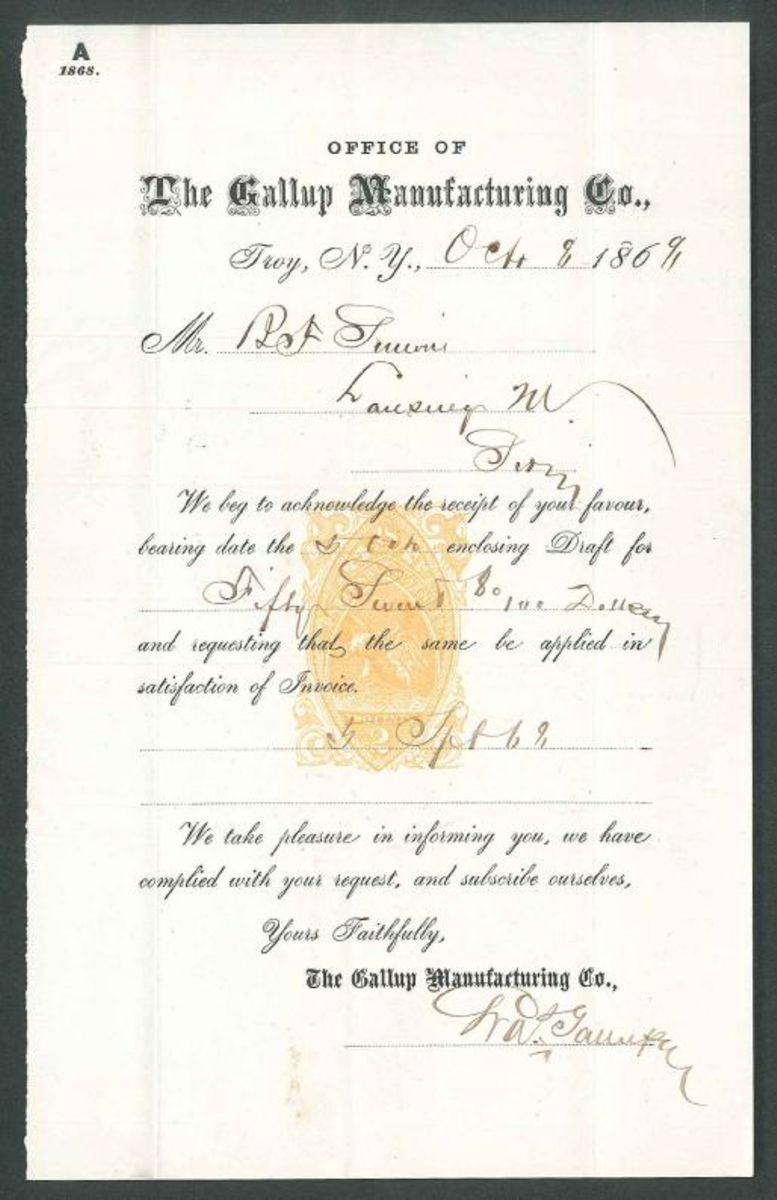 A
1868.
OFFICE OF
The Gallup Manufacturing Co.,
Troy, N. Y., Oct 8 1869
Mr. B F Simons
Lansing M
We beg to acknowledge the receipt of your favour,
bearing date the 5 enclosing Draft for
Fifty 80/100 Dollars
and requesting that the same be applied in
satisfaction of Invoice.
5 Spt 68
We take pleasure in informing you, we have
complied with your request, and subscribe ourselves,
Yours Faithfully,
The Gallup Manufacturing Co.,